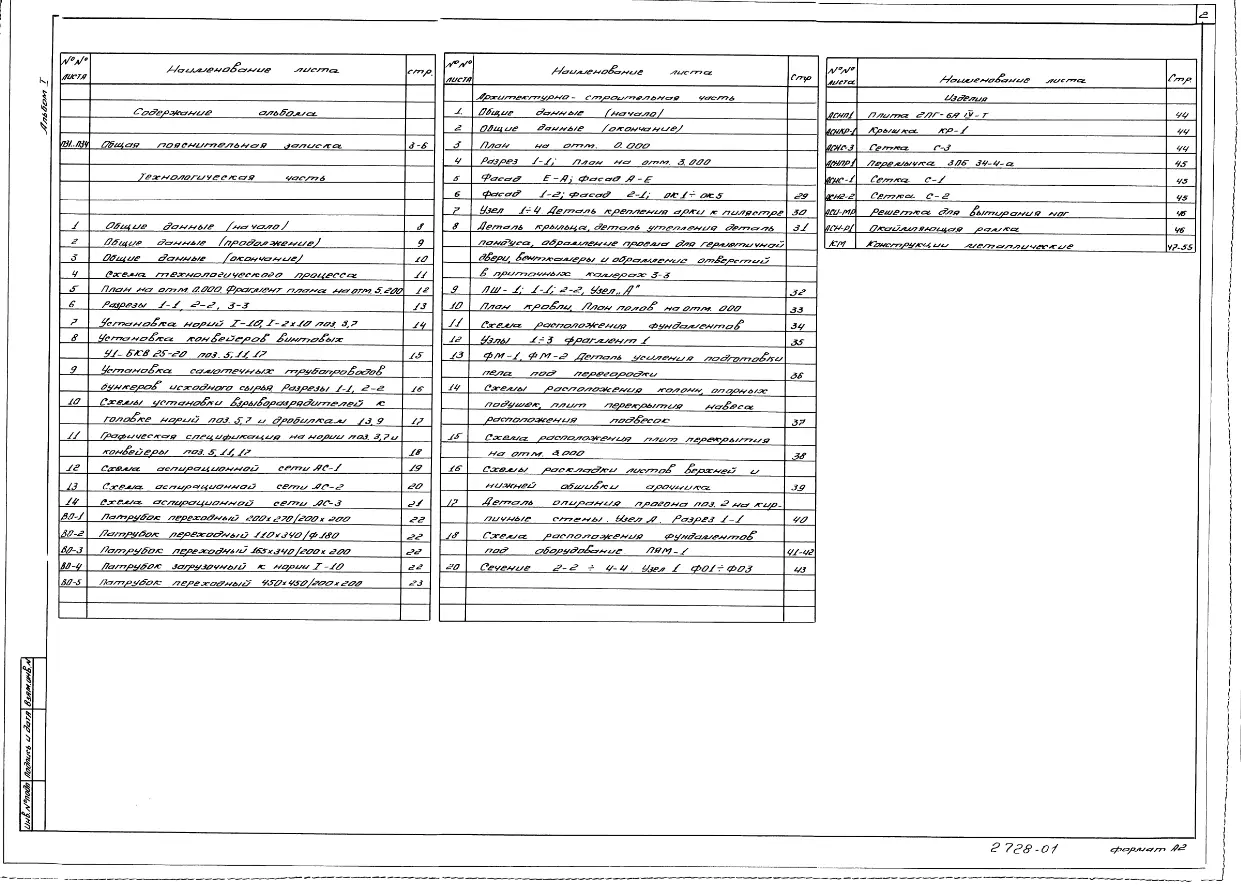 2
Альбом I
N°N° листа Наименование листа стр.
Содержание альбома
ПЗ1..ПЗ4 Общая пояснительная записка 3-6
Технологическая часть
1 Общие данные (начало) 8
2 Общие данные (продолжение) 9
3 Общие данные (окончание) 10
4 Схема технологического процесса 11
5 План на отм. 0.000. Фрагмент плана на отм. 5.200 12
6 Разрезы 1-1, 2-2, 3-3 13
7 Установка норий I-10, I-2х10 поз. 3,7 14
8 Установка конвейеров винтовых
У1-БКВ 25-20 поз. 5,11,17 15
9 Установка самотечных трубопроводов
бункеров исходного сырья Разрезы 1-1, 2-2 16
10 Схемы установки взрыворазрядителей к
головке норий поз. 5,7 и дробилкам 13,9 17
11 Графическая спецификация на нории поз. 3,7 и
конвейеры поз. 5,11,17 18
12 Схема аспирационной сети АС-1 19
13 Схема аспирационной сети АС-2 20
14 Схема аспирационной сети АС-3 21
ВО-1 Патрубок переходный 200х270/200х200 22
ВО-2 Патрубок переходный 110х340/ф180 22
ВО-3 Патрубок переходный 165х340/200х200 22
ВО-4 Патрубок загрузочный к нории I-10 22
ВО-5 Патрубок переходный 450х450/200х200 23
N°N° листа Наименование листа Стр
Архитектурно-строительная часть
1. Общие данные (начало)
2 Общие данные (окончание)
3 План на отм. 0.000
4 Разрез 1-1; План на отм. 3.000
5 Фасад Е-А; Фасад А-Е
6 Фасад 1-2; Фасад 2-1; ОК1÷ОК5 29
7 Узел 1÷4 Деталь крепления арки к пилястре 30
8 Деталь крыльца, деталь утепления деталь 31
пандуса, обрамление проема для герметичной
двери, венткамеры и обрамление отверстий
в приточных камерах 3-3
9 ПШ-1; 1-1; 2-2, Узел „А" 32
10 План кровли, План полов на отм. 000 33
11 Схема расположения фундаментов 34
12 Узлы 1÷3 фрагмент 1 35
13 ФМ-1, ФМ-2 Деталь усиления подготовки
пола под перегородки 36
14 Схемы расположения колонн, опорных
подушек, плит перекрытия навеса
расположения подвесок 37
15 Схема расположения плит перекрытия
на отм. 3.000 38
16 Схемы раскладки листов верхней и
нижней обшивки арочника 39
17 Деталь опирания прогона поз. 2 на кир-
пичные стены. Узел А. Разрез 1-1 40
18 Схема расположения фундаментов
под оборудование ПЯМ-1 41-42
20 Сечение 2-2 ÷ 4-4. Узел 1 Ф01÷Ф03 43
N°N° листа Наименование листа Стр.
Изделия
АСНП1 Плита 2ПГ-6А IV-Т 44
АСНКР-1 Крышка КР-1 44
АСНС-3 Сетка С-3 44
АСНПР1 Перемычка 3ПБ 34-4-а 45
АСНС-1 Сетка С-1 45
АСН2-2 Сетка С-2 45
АСИ-МР Решетка для вытирания ног 46
АСН-Р1 Окаймляющая рамка 46
КМ Конструкции металлические 47-55
Инв.N°подл Подпись и дата Взам.инв.N
2728-01
формат А2